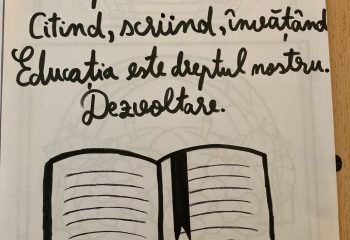 Citind, scriind, învățând
Educația este dreptul nostru.
Dezvoltare.